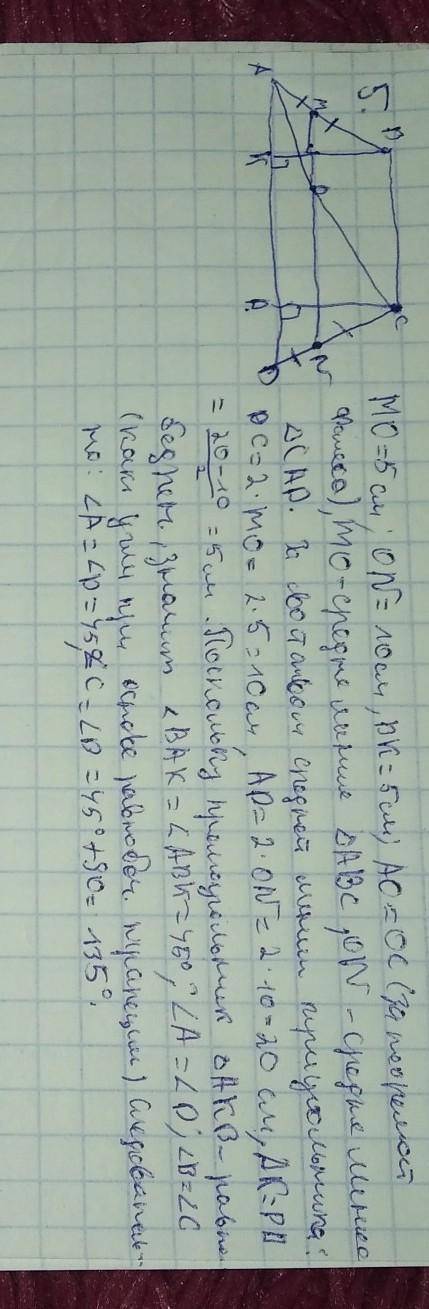 5.
A
M
B
K
O
P
N
C
D
MO=5см; ON=10см, BK=5см; AO=OC (за теоремой
Фалеса), MO-средня линия ΔABC, ON-средня линия
ΔCAD. За свойством средней линии треугольника:
BC=2·MO=2·5=10см, AD=2·ON=2·10=20см, AK=PD
= 20-10 / 2 = 5см. Поскольку прямоугольник ΔAKB-равно-
бедрен, значит ∠BAK=∠ABK=45°; ∠A=∠D; ∠B=∠C
(как углы при основе равнобоч. трапеции) Следователь-
но: ∠A=∠D=45°, ∠C=∠B=45°+90=135°.